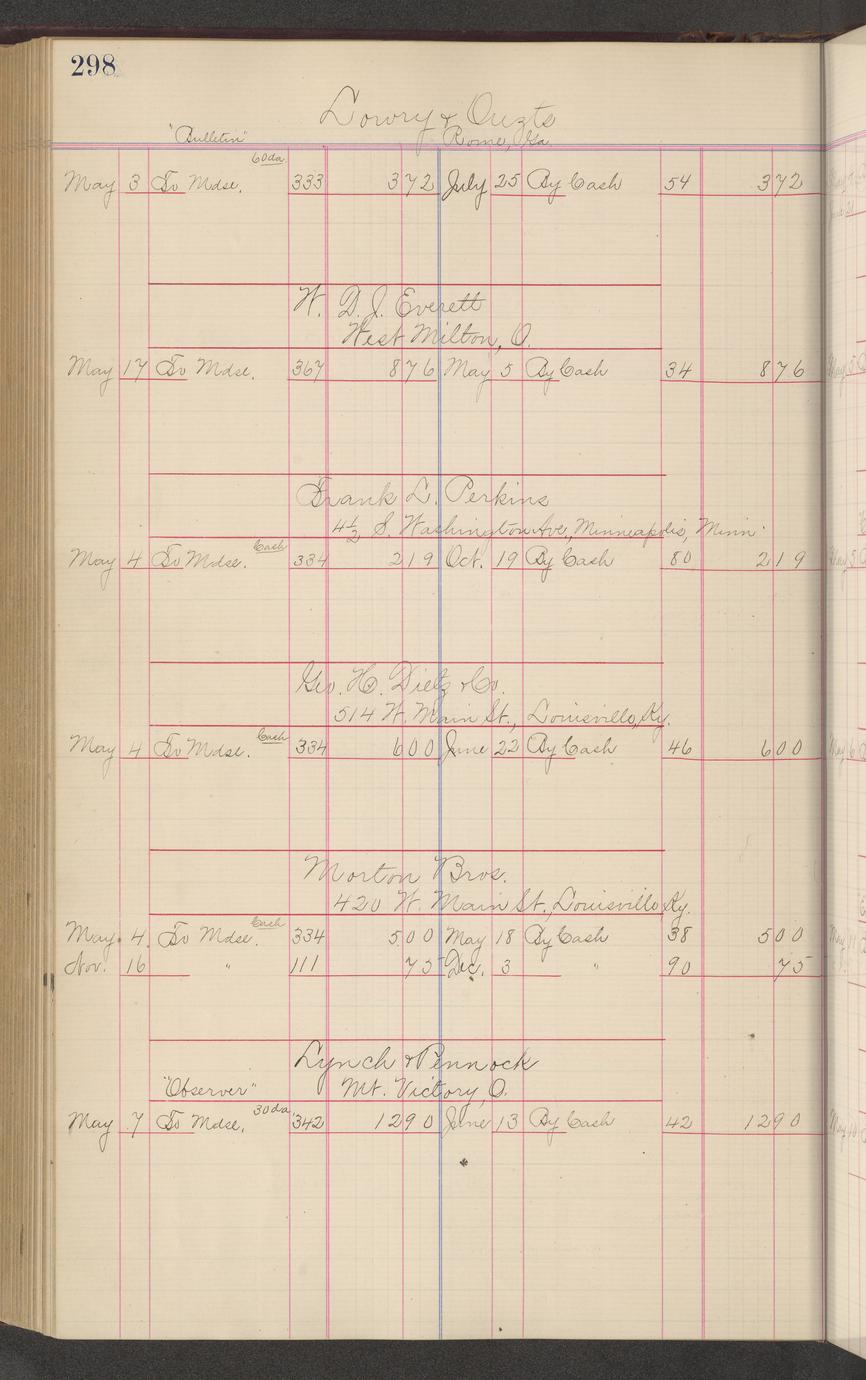 298
Lowry & Ouzts
"Bulletin" Rome, Ga.
60da
May 3 To Mdse. 333 3 72 July 25 By Cash 54 3 72
W. D. J. Everett
West Milton, O.
May 17 To Mdse. 367 8 76 May 5 By Cash 34 8 76
Frank L. Perkins
4½ S. Washington Ave., Minneapolis, Minn.
Cash
May 4 To Mdse. 334 2 19 Oct. 19 By Cash 80 2 19
Geo. H. Dietz & Co.
514 W. Main St., Louisville, Ky.
Cash
May 4 To Mdse. 334 6 00 June 22 By Cash 46 6 00
Morton Bros.
420 W. Main St., Louisville Ky.
Cash
May 4 To Mdse. 334 5 00 May 18 By Cash 38 5 00
Nov. 16 " 111 75 Dec. 3 " 90 75
Lynch & Pennock
"Observer" Mt. Victory, O.
30da
May 7 To Mdse. 342 12 90 June 13 By Cash 42 12 90